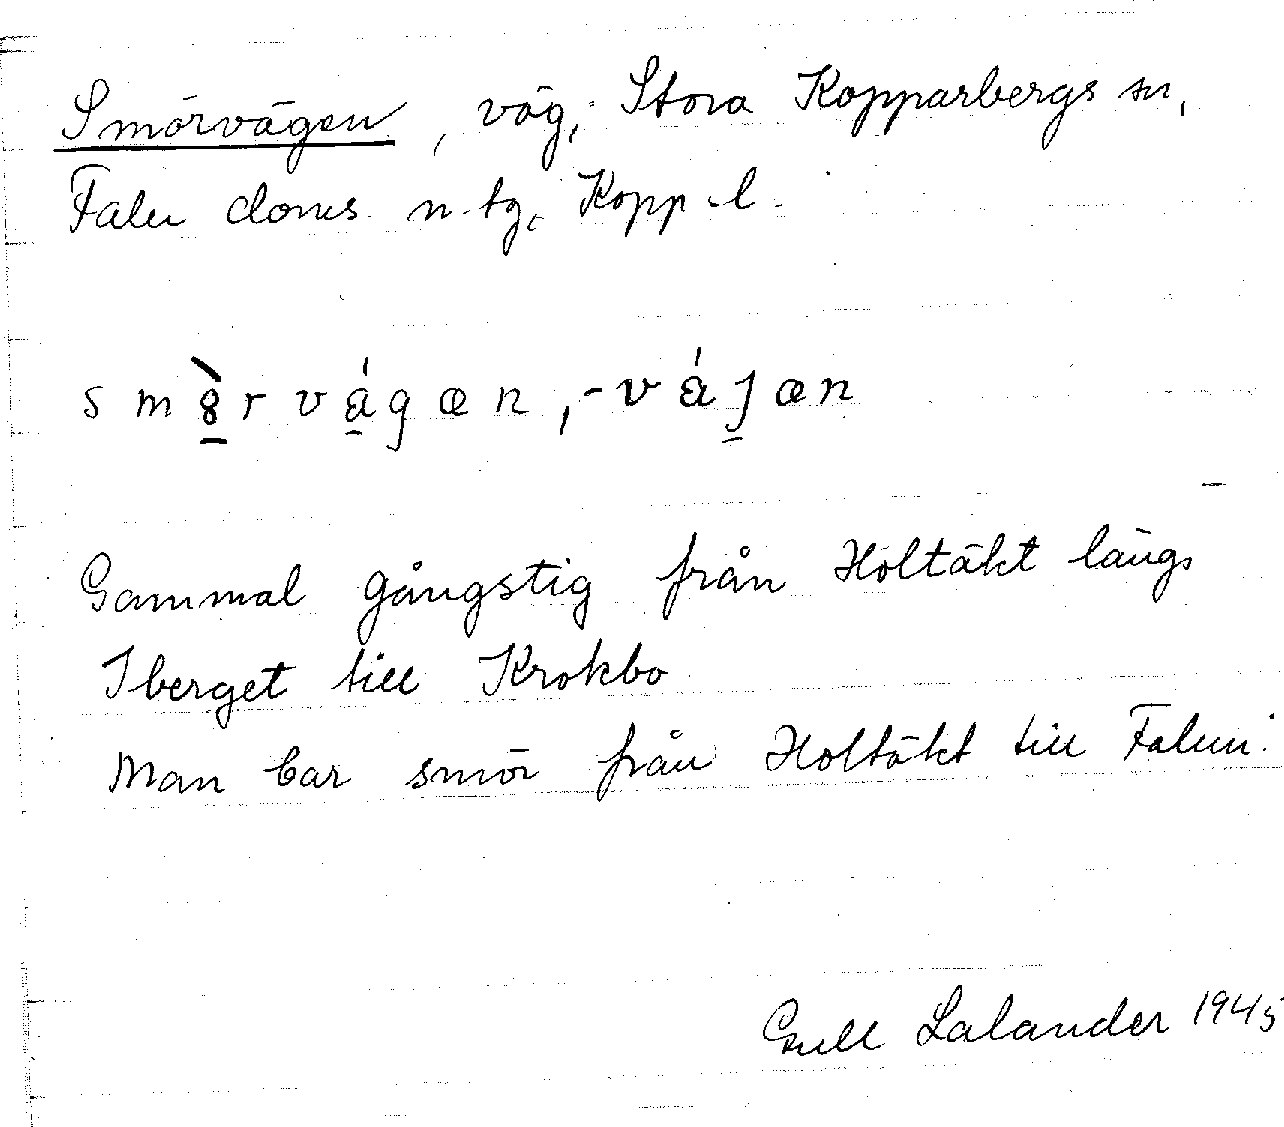 Smörvägen, väg, Stora Kopparbergs sn,
Falu doms n. tg, Kopp. l.
smȣ̀rvágœn, -vájœn
Gammal gångstig från Holtäkt längs
Iberget till Krokbo
Man bar smör från Holtäkt till Falun.
Gull Lalander 1945